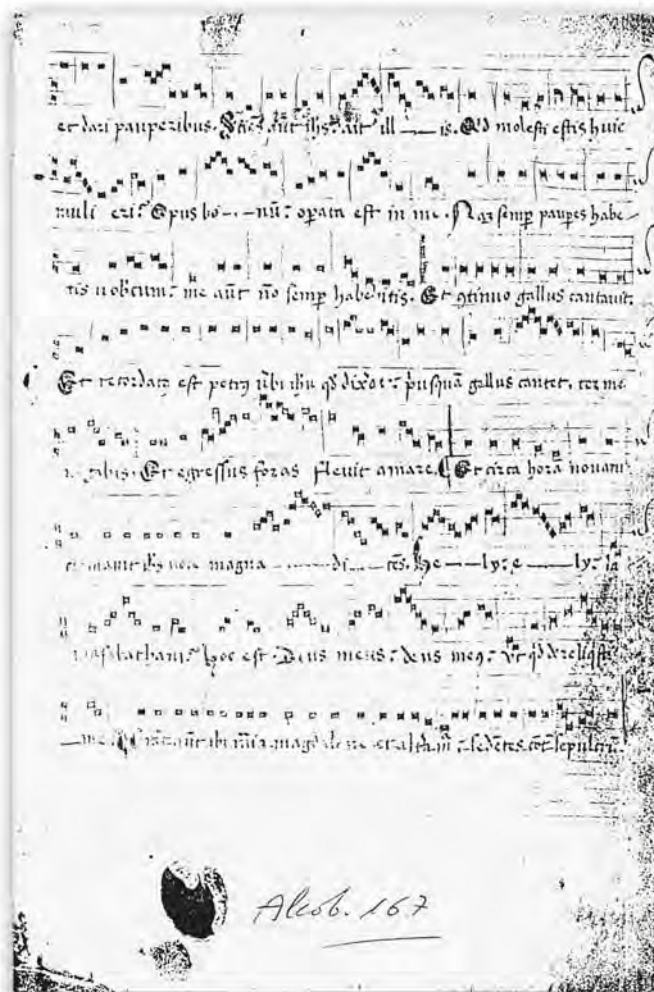 et dari pauperibus. aut ihs. ait ill — is. Qd molesti estis huic
muli eri. Opus bo — nū. opata est in me. semp paupes habe
tis uobcum. me aūt nō semp habebitis. Et gtinuo gallus cantauit.
Et recordatq est petrq ūbi ihū qd dix'at. pusquā gallus cantet. ter me
Et egressus foras fleuit amare. Et circa hora nonam
clamauit ihs uoce magna — di — ces. he — ly. e — ly.
hoc est. Deus meus. deus meq. ut qd dereliqsti
me. aūt ibi maria magdalene et alta m. sedētes sepulcrū.
Alcob. 167